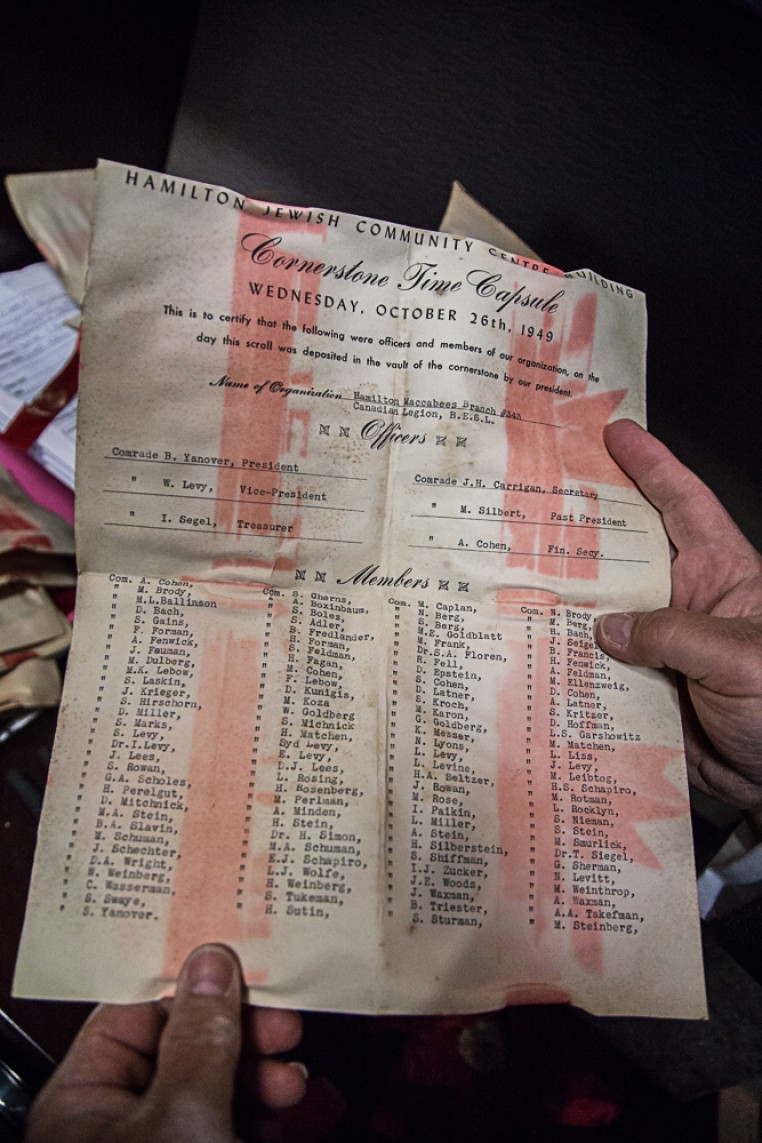 HAMILTON JEWISH COMMUNITY CENTRE BUILDING
Cornerstone Time Capsule
WEDNESDAY, OCTOBER 26th, 1949
This is to certify that the following were officers and members of our organization, on the
day this scroll was deposited in the vault of the cornerstone by our president.
Name of Organization Hamilton Maccabees Branch #343
Canadian Legion, B.E.S.L.
Officers
Comrade B. Yanover, President
" W. Levy, Vice-President
" I. Segel, Treasurer
Comrade J.H. Carrigan, Secretary
" M. Silbert, Past President
" A. Cohen, Fin. Secy.
Members
Com. A. Cohen,
" M. Brody,
" M.L.Ballinson
" D. Bach,
" S. Gains,
" F. Forman,
" A. Fenwick,
" J. Fauman,
" M. Dulberg,
" M.K. Lebow,
" S. Laskin,
" J. Krieger,
" S. Hirschorn,
" D. Miller,
" S. Marks,
" S. Levy,
" Dr.I.Levy,
" J. Lees,
" S. Rowan,
" G.A. Scholes,
" H. Perelgut,
" D. Mitchnick,
" M.A. Stein,
" B.A. Slavin,
" M. Schuman,
" J. Schechter,
" D.A. Wright,
" W. Weinberg,
" C. Wasserman,
" S. Swaye,
" S. Yanover.
Com. S. Cherns,
" A. Boxinbaum,
" S. Boles,
" S. Adler,
" B. Fredlander,
" H. Forman,
" S. Feldman,
" H. Fagan,
" M. Cohen,
" F. Lebow,
" D. Kunigis,
" M. Koza
" W. Goldberg
" S. Michnick
" H. Matchen,
" Syd Levy,
" E. Levy,
" D.J. Lees,
" L. Rosing,
" H. Rosenberg,
" M. Perlman,
" A. Minden,
" H. Stein,
" Dr. H. Simon,
" M.A. Schuman,
" E.J. Schapiro,
" L.J. Wolfe,
" H. Weinberg,
" S. Tukeman,
" H. Sutin,
Com. M. Caplan,
" N. Berg,
" S. Berg,
" M.E. Goldblatt
" M. Frank,
" Dr.S.A. Floren,
" R. Fell,
" D. Epstein,
" S. Cohen,
" D. Latner,
" S. Kroch,
" M. Karon,
" G. Goldberg,
" K. Messer,
" N. Lyons,
" L. Levy,
" L. Levine,
" H.A. Seltzer,
" J. Rowan,
" M. Rose,
" I. Paikin,
" L. Miller,
" A. Stein,
" H. Silberstein,
" S. Shiffman,
" I.J. Zucker,
" J.E. Woods,
" J. Waxman,
" B. Triester,
" S. Sturman,
Com. N. Brody,
" M. Berg,
" H. Bach,
" J. Seigel
" B. Francis,
" H. Fenwick,
" A. Feldman,
" M. Ellenzweig,
" D. Cohen,
" A. Latner,
" S. Kritzer,
" D. Hoffman,
" L.S. Garshowitz
" M. Matchen,
" L. Liss,
" J. Levy,
" M. Leibtog,
" H.S. Schapiro,
" M. Rotman,
" L. Rocklyn,
" S. Nieman,
" S. Stein,
" M. Smurlick,
" Dr.T. Siegel,
" G. Sherman,
" N. Levitt,
" M. Weinthrop,
" A. Waxman,
" A.A. Takefman,
" M. Steinberg,